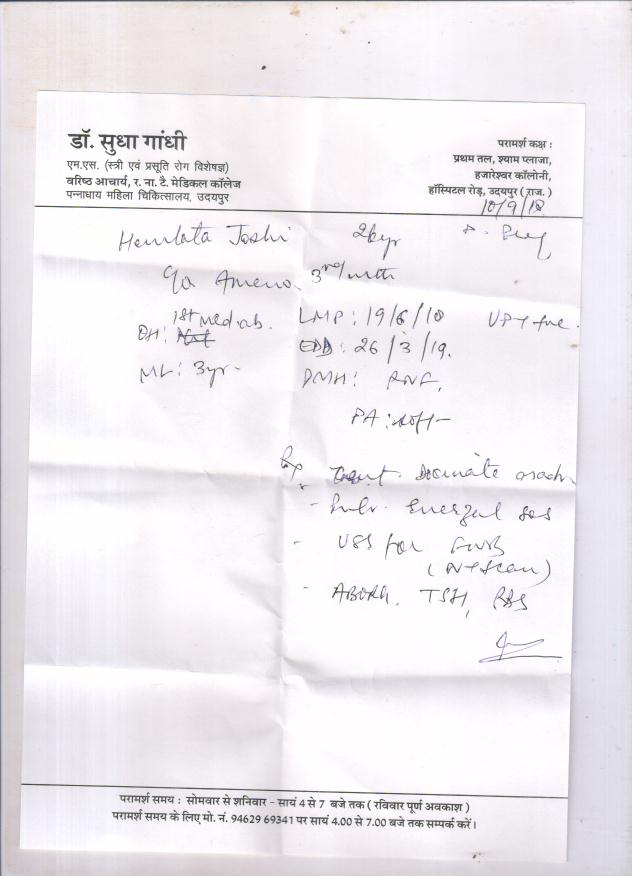 डॉ. सुधा गांधी
एम.एस. (स्त्री एवं प्रसूति रोग विशेषज्ञ)
वरिष्ठ आचार्य, र. ना. टै. मेडिकल कॉलेज
पन्नाधाय महिला चिकित्सालय, उदयपुर
परामर्श कक्ष :
प्रथम तल, श्याम प्लाजा,
हजारेश्वर कॉलोनी,
हॉस्पिटल रोड़, उदयपुर ( राज. )
10/9/18
Hemlata Joshi 26yr
Ameno. 3rd/mth
1st med ab. LMP : 19/6/18 UPT +ve.
OH :
EDD : 26/3/19.
ML : 3yr
PA : soft
Rx
- USS for FWB
(NT Scan)
- ABORh, TSH, RBS
परामर्श समय : सोमवार से शनिवार - सायं 4 से 7 बजे तक ( रविवार पूर्ण अवकाश )
परामर्श समय के लिए मो. नं. 94629 69341 पर सायं 4.00 से 7.00 बजे तक सम्पर्क करें।